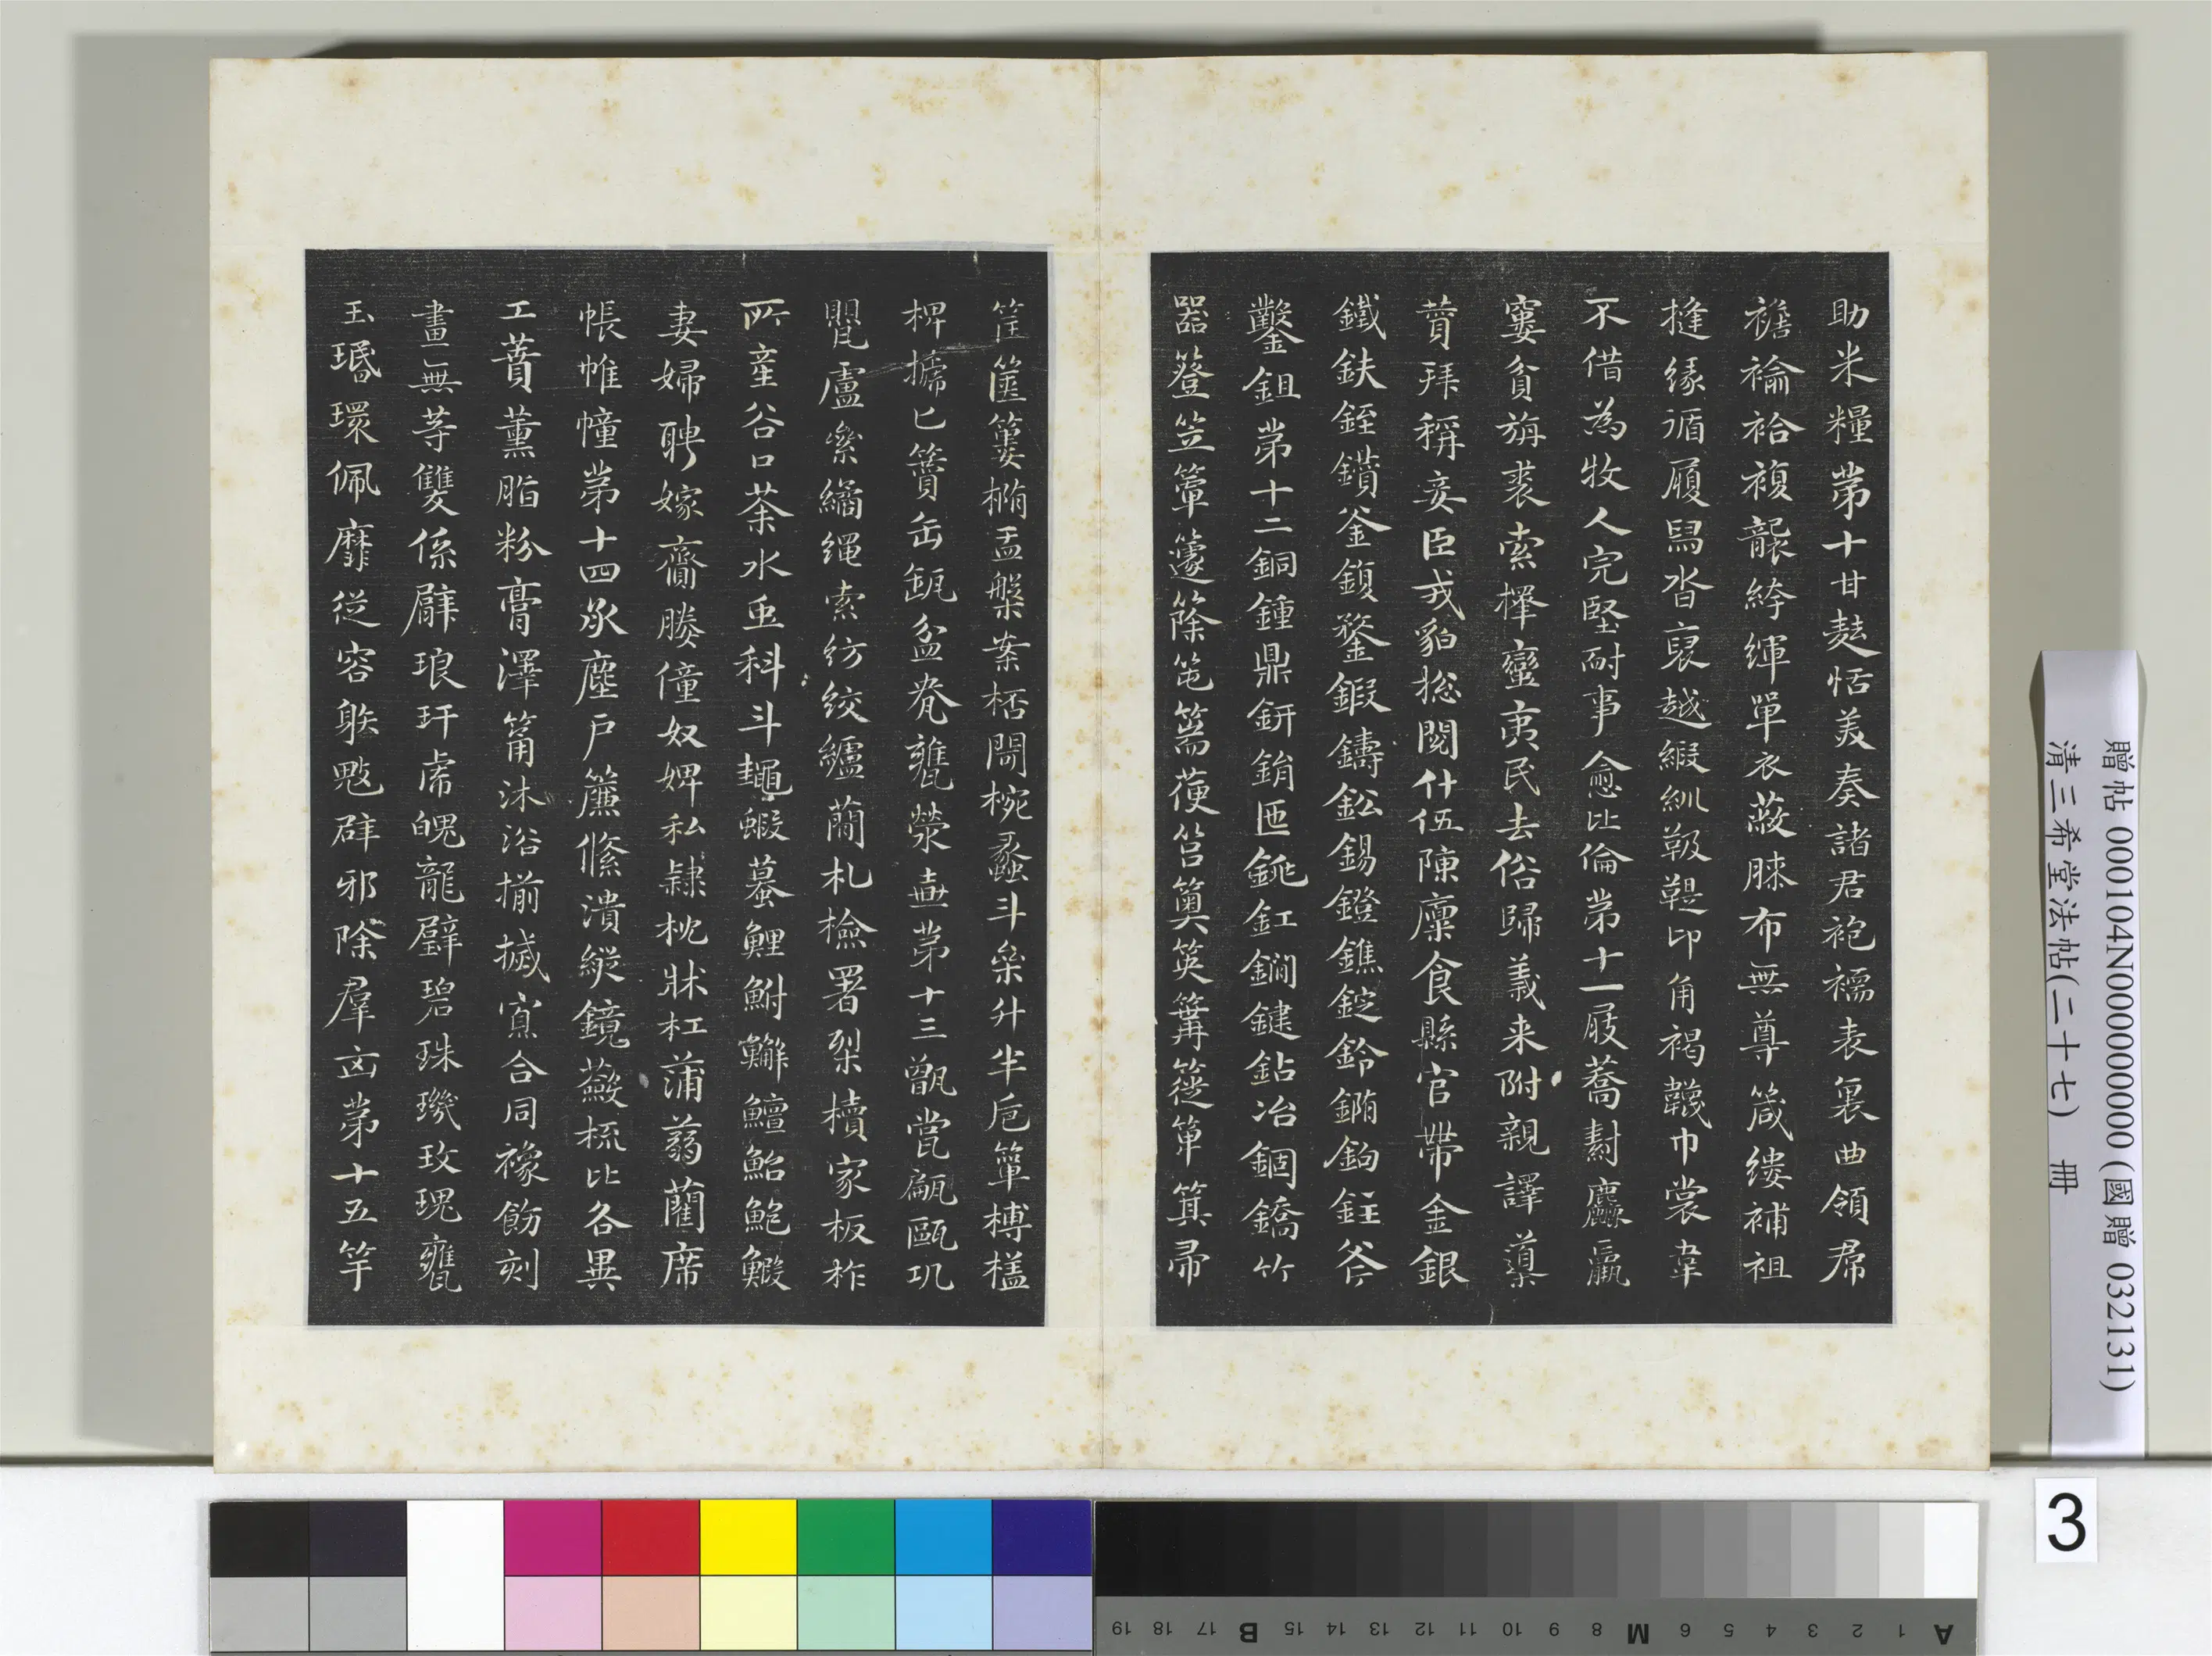 助米糧第十甘麩恬美奏諸君袍襦表裏曲領帬
襜褕袷複褶袴褌單衣蔽膝布無尊箴縷補袒
摓緣循履舄沓裒越緞紃靸鞮卬角褐韤巾裳韋
不借為牧人完堅耐事愈比倫第十一屐蕎𪎭麤羸
窶貧旃裘索擇蠻夷民去俗歸義来附親譯導
贊拜稱妾臣戎貊揔閱什伍陳廩食縣官帶金銀
鐵鈇銍鑽釜鍑鍪鍜鑄鈆錫鐙鐎錠鈴鋗鉤銍斧
鑿鉏第十二銅鍾鼎鈃鋗匜銚釭鐧鍵鉆冶錮鐈竹
器簦笠簟籧篨笔篅䔰筥䉛筴篝簁箄箕帚
筐篋簍椭盂槃案桮閜椀蠡斗桊升半卮箪榑榼
椑㯕匕籫缶缻盆㼜罋罃壺第十三甑瓽甂甌㼚
甖盧絫繘繩索紡絞纑蕳札檢署槧櫝家板柞
所產谷口荼水玉科斗䵷蝦蟇鯉鮒䲒鱣鮐鮑鰕
妻婦聘嫁齎媵僮奴婢私隷枕牀杠蒲蒻藺席
帳帷幢第十四承塵戶簾絛潰縱鏡蘞梳比各異
工蕡薰脂粉膏澤筩沐浴揃搣寡合同襐飭刻
畫無等雙係臂琅玕虎魄龍璧碧珠璣玫瑰罋
玉瑉環佩靡從容躲鬾辟邪除羣凶第十五竽
贈帖 000104N000000000(國贈 032131)
清三希堂法帖(二十七) 冊
3
A 1 2 3 4 5 6 M 8 9 10 11 12 13 14 15 B 17 18 19